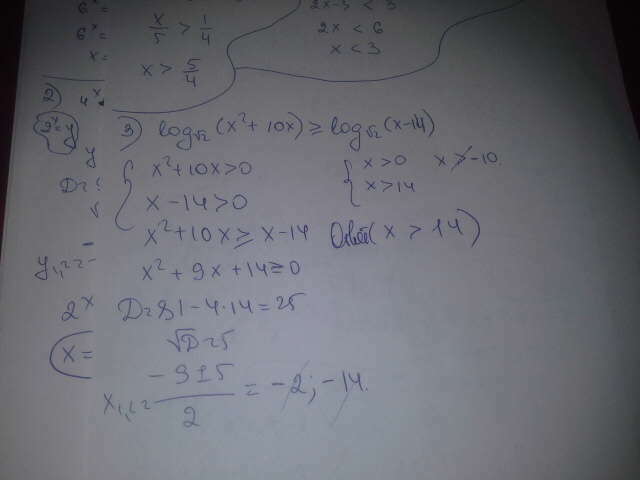 6^x =
6^x =
x =
x/5 > 1/4
x > 5/4
2x-3 < 3
2x < 6
x < 3
2) 4^x
2^x = y
y
D =
y₁,₂ = -
2^x
x =
3) log_√2 (x² + 10x) ≥ log_√2 (x-14)
{ x² + 10x > 0 { x > 0 x > -10.
x - 14 > 0 x > 14
x² + 10x ≥ x - 14 Ответ( x > 14 )
x² + 9x + 14 ≥ 0
D = 81 - 4·14 = 25
√D = 5
x₁,₂ = (-9±5)/2 = -2; -14.